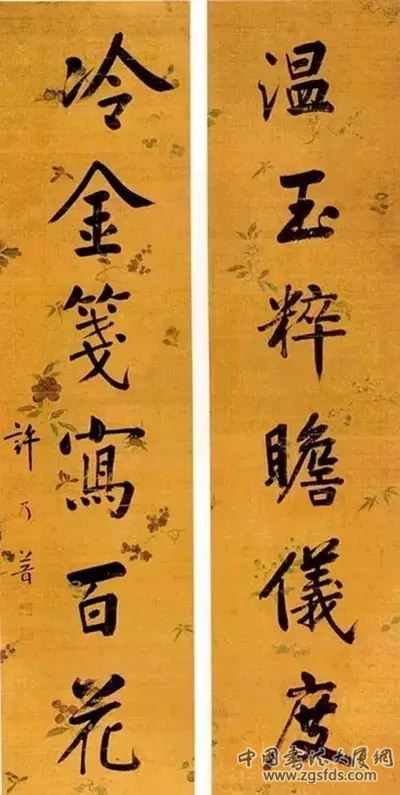 温玉粹瞻儀度
冷金箋寫百花
許乃普
中国书法大厦网
www.zgsfds.com